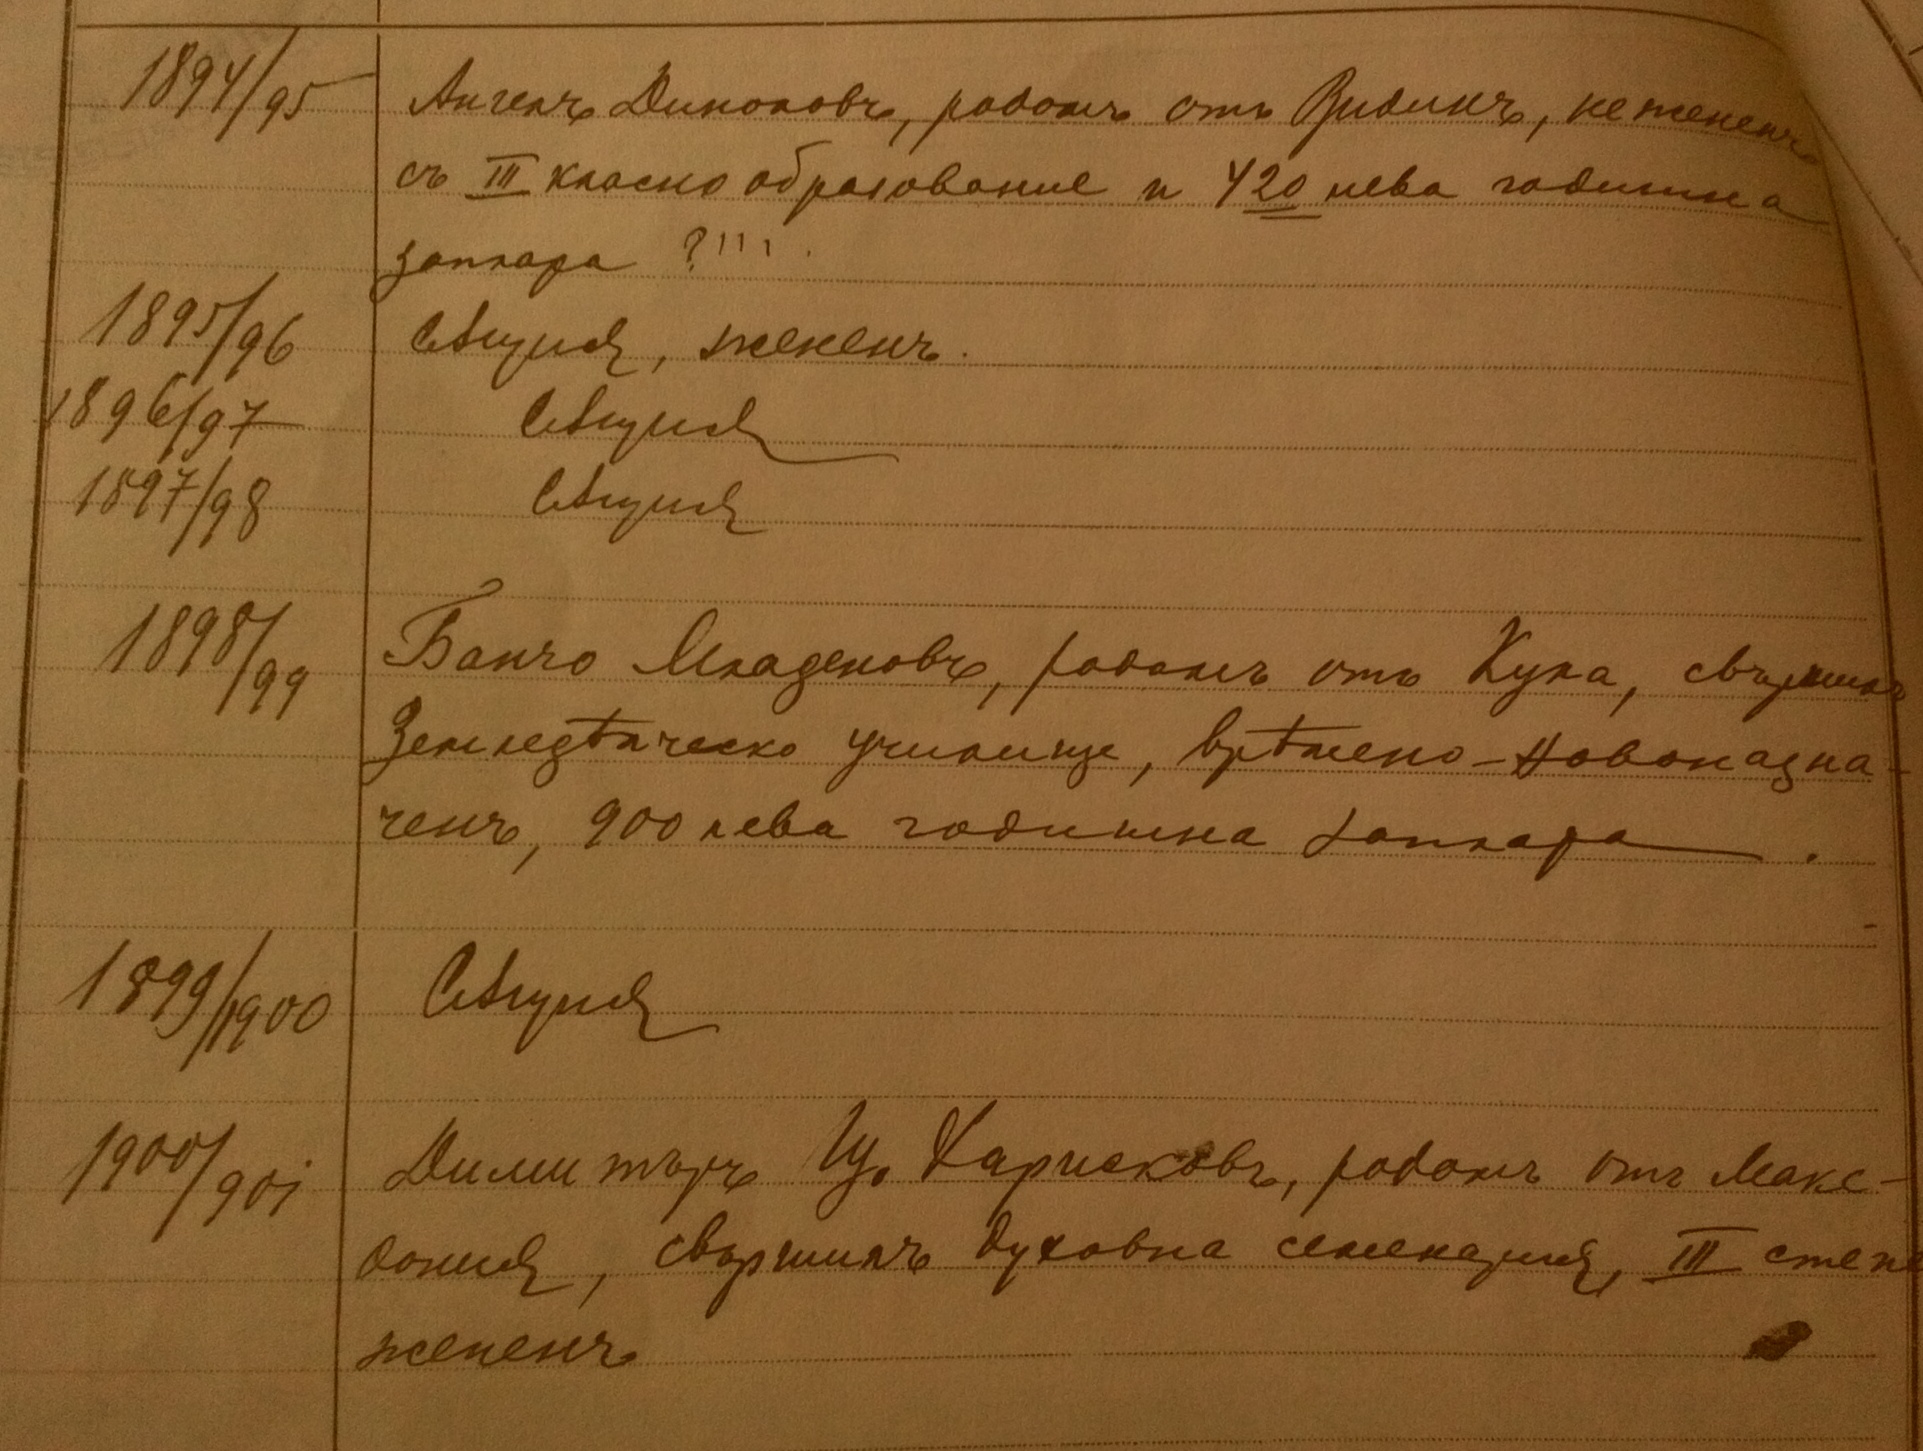 1894/95 Ангелъ Динововъ, родомъ отъ Видинъ, не жененъ
съ III класно образование и 420 лева годишна
заплара ?!!!
1895/96 Сѫщия, жененъ.
1896/97 Сѫщия
1897/98 Сѫщия
1898/99 Банчо Младеновъ, родомъ отъ Кула, свършилъ
Земледѣлческо училище, врѣмено-новоназна-
ченъ, 900 лева годишна заплара.
1899/1900 Сѫщия
1900/901 Димитъръ Ц. Харисковъ, родомъ отъ Маке-
дония, свършилъ духовна семенария, III степе
жененъ